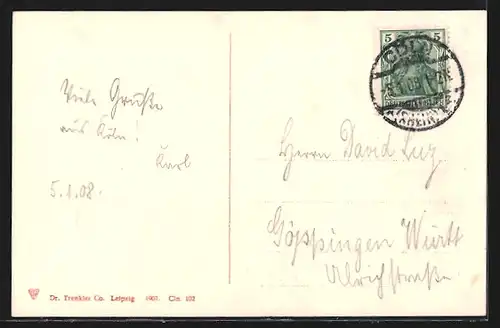 Viele Grüße
aus Köln!
Karl
5.1.08.
5 5
CÖLN
Herrn David Luz
Göppingen Württ
Ulrichstraße
Dr. Trenkler Co. Leipzig 1907. Cln. 102